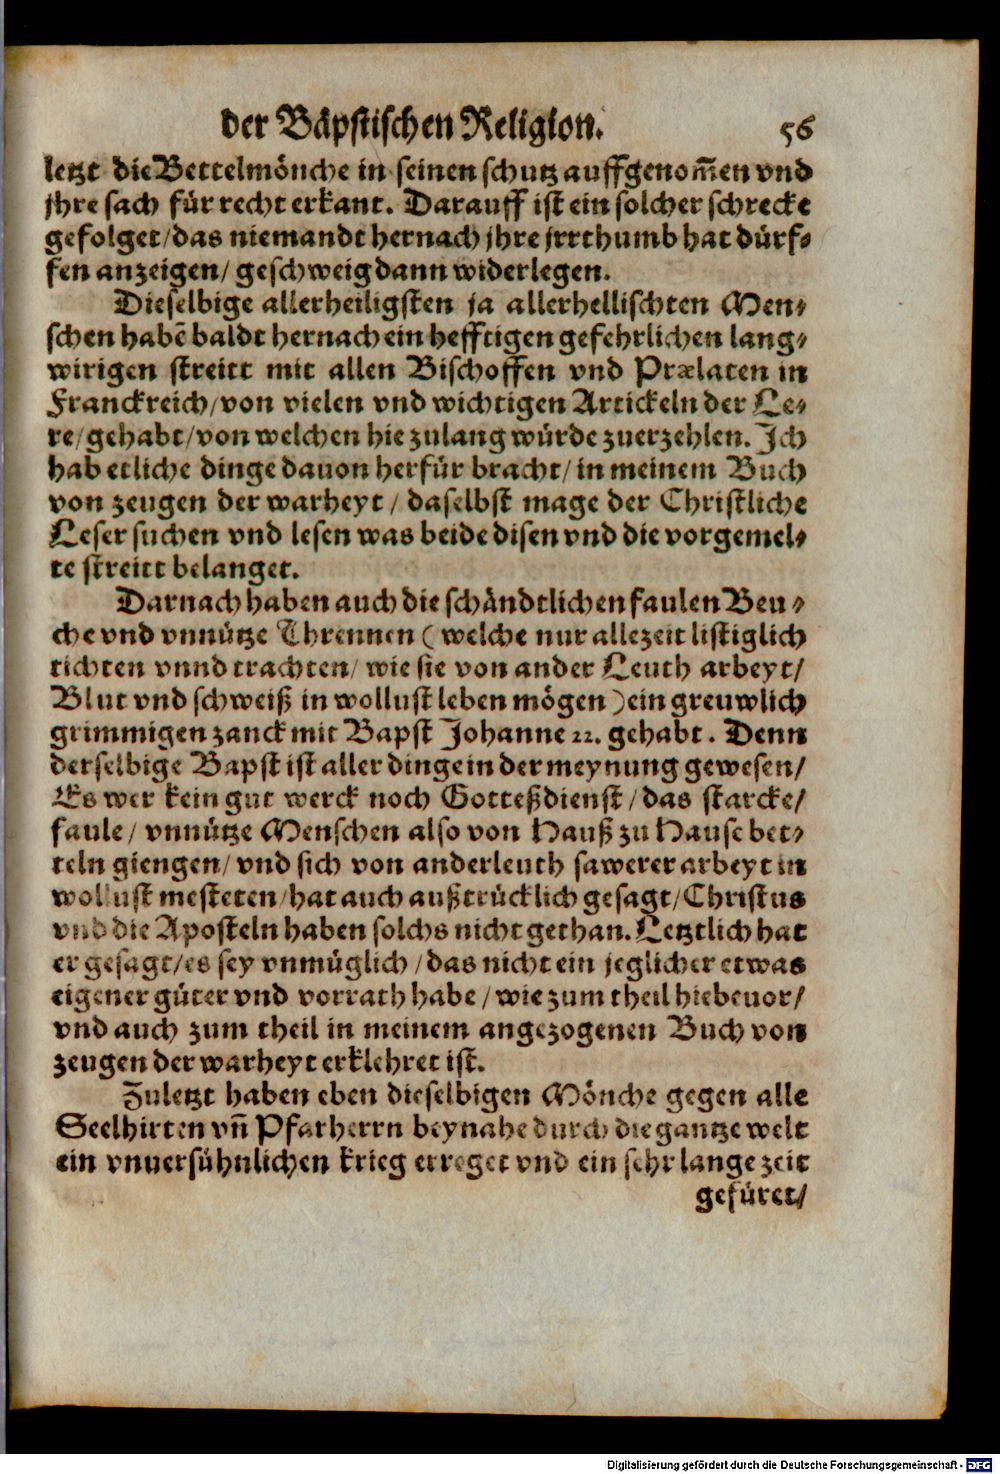 der Bäpstischen Religion. 56
letzt die Bettelmönche in seinen schutz auffgenom̃en vnd
jhre sach für recht erkant. Darauff ist ein solcher schrecke
gefolget/das niemandt hernach jhre jrrthumb hat dürf-
fen anzeigen/ geschweig dann widerlegen.
Dieselbige allerheiligsten ja allerhellischten Men-
schen habẽ baldt hernach ein hefftigen gefehrlichen lang-
wirigen streitt mit allen Bischoffen vnd Prælaten in
Franckreich/von vielen vnd wichtigen Artickeln der Le-
re/gehabt/von welchen hie zulang würde zuerzehlen. Ich
hab etliche dinge dauon herfür bracht/in meinem Buch
von zeugen der warheyt/ daselbst mage der Christliche
Leser suchen vnd lesen was beide disen vnd die vorgemel-
te streitt belanget.
Darnach haben auch die schändtlichen faulen Beu-
che vnd vnnütze Threnen (welche nur allezeit listiglich
tichten vnnd trachten/ wie sie von ander Leuth arbeyt/
Blut vnd schweiß in wollust leben mögen) ein greuwlich
grimmigen zanck mit Bapst Johanne 22. gehabt. Denn
derselbige Bapst ist aller dinge in der meynung gewesen/
Es wer kein gut werck noch Gotteßdienst/das starcke/
faule/ vnnütze Menschen also von Hauß zu Hause bet-
teln giengen/ vnd sich von anderleuth sawerer arbeyt in
wollust mesteten/hat auch außtrücklich gesagt/Christus
vnd die Aposteln haben solchs nicht gethan. Letztlich hat
er gesagt/es sey vnmüglich/das nicht ein jeglicher etwas
eigener güter vnd vorrath habe/wie zum theil hiebeuor/
vnd auch zum theil in meinem angezogenen Buch von
zeugen der warheyt erklehret ist.
Zuletzt haben eben dieselbigen Mönche gegen alle
Seelhirten vñ Pfarherrn beynahe durch die gantze welt
ein vnuersühnlichen krieg erreget vnd ein sehr lange zeit
gefüret/
Digitalisierung gefördert durch die Deutsche Forschungsgemeinschaft - DFG